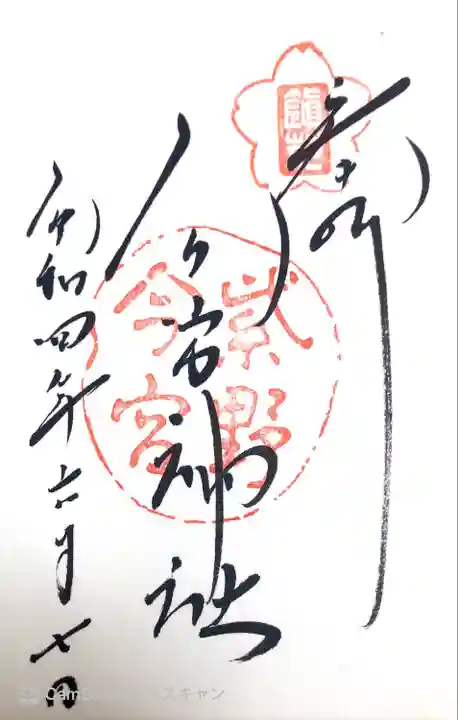 今宮神社
令和四年六月七日
紫野
今宮
スキャン